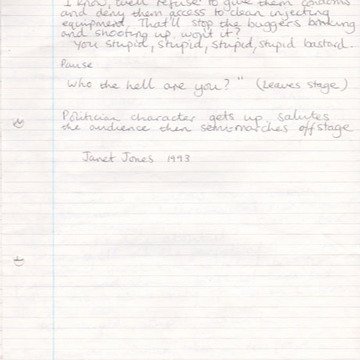 I know, we'll refuse to give them condoms
and deny them access to clean injecting
equipment. That'll stop the buggers bonking
and shooting up won't it?
You stupid, stupid, stupid, stupid bastard.
Pause
Who the hell are you?" (Leaves stage)
Politician character gets up, salutes
the audience then semi-marches offstage
Janet Jones 1993